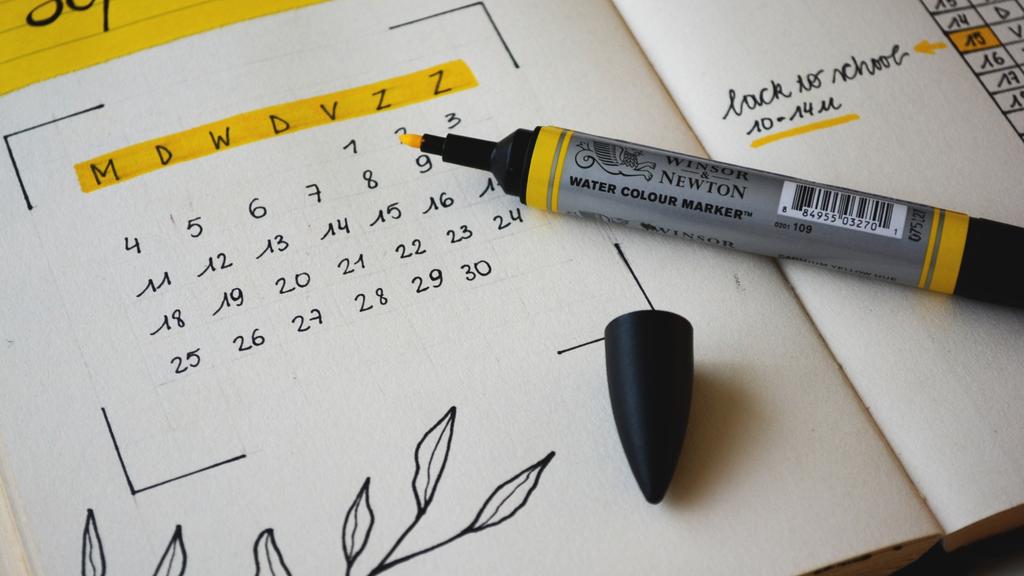 Sep
M D W D V Z Z
1 2 3
4 5 6 7 8 9
11 12 13 14 15 16
18 19 20 21 22 23 24
25 26 27 28 29 30
back to school
10-14u
WINSOR
&
NEWTON
WATER COLOUR MARKER™
0201 109
8 84955 03270 1
WINSOR
14 D
15 V
16
17